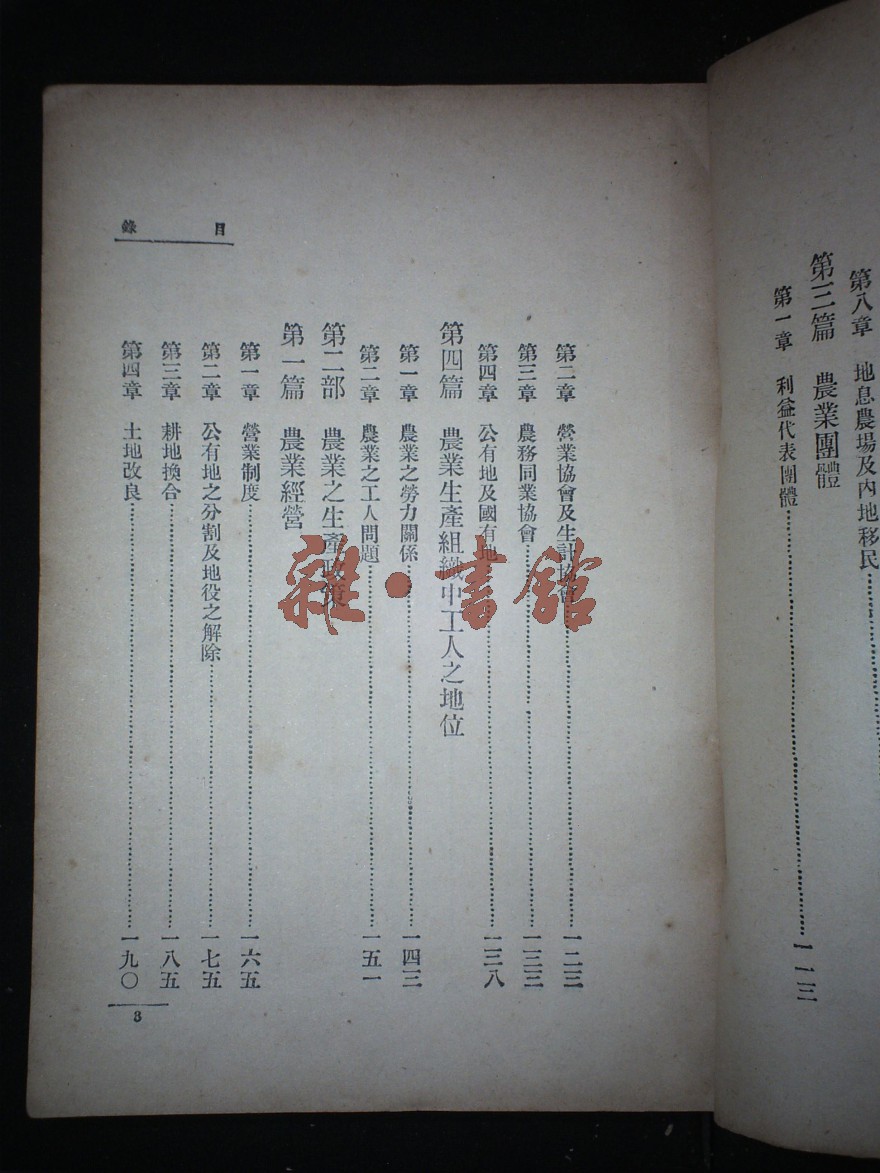 第八章　地息農場及內地移民
第三篇　農業團體
第一章　利益代表團體………一一三
目錄
第二章　營業協會及生計協會………一二三
第三章　農務同業協會………一三三
第四章　公有地及國有地………一三八
第四篇　農業生產組織中工人之地位
第一章　農業之勞力關係………一四三
第二章　農業之工人問題………一五一
第二部　農業之生產政策
第一篇　農業經營
第一章　營業制度………一六五
第二章　公有地之分割及地役之解除………一七五
第三章　耕地換合………一八五
第四章　土地改良………一九〇
3
雜·書館